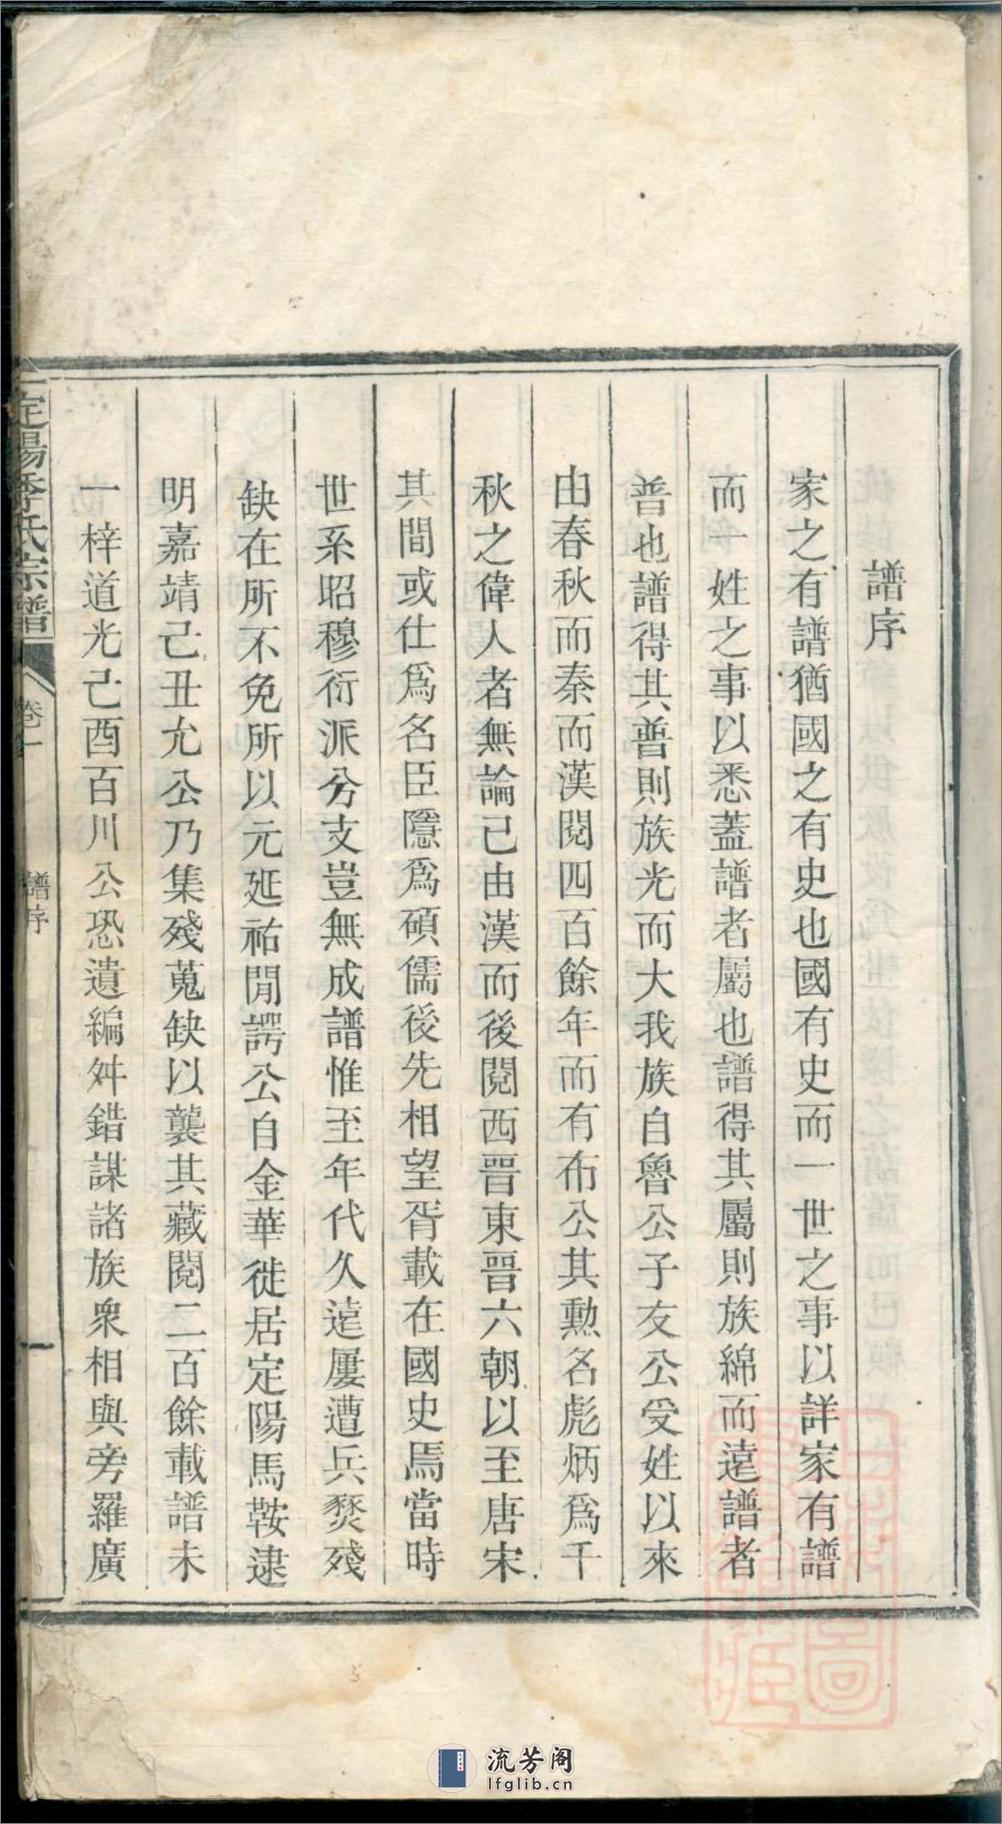 譜序
家之有譜猶國之有史也國有史而一世之事以詳家有譜
而一姓之事以悉蓋譜者屬也譜得其屬則族綿而遠譜者
普也譜得其普則族光而大我族自魯公子友公受姓以來
由春秋而秦而漢閱四百餘年而有布公其勲名彪炳爲千
秋之偉人者無論已由漢而後閱西晉東晉六朝以至唐宋
其間或仕爲名臣隱爲碩儒後先相望胥載在國史焉當時
世系昭穆衍派分支豈無成譜惟至年代久遠屢遭兵燹殘
缺在所不免所以元延祐閒諤公自金華徙居定陽馬鞍逮
明嘉靖己丑允公乃集殘蒐缺以襲其藏閱二百餘載譜未
一梓道光己酉百川公恐遺編舛錯謀諸族衆相與旁羅廣
定陽季氏宗譜
卷首
譜序
一
流芳阁
lfglib.cn